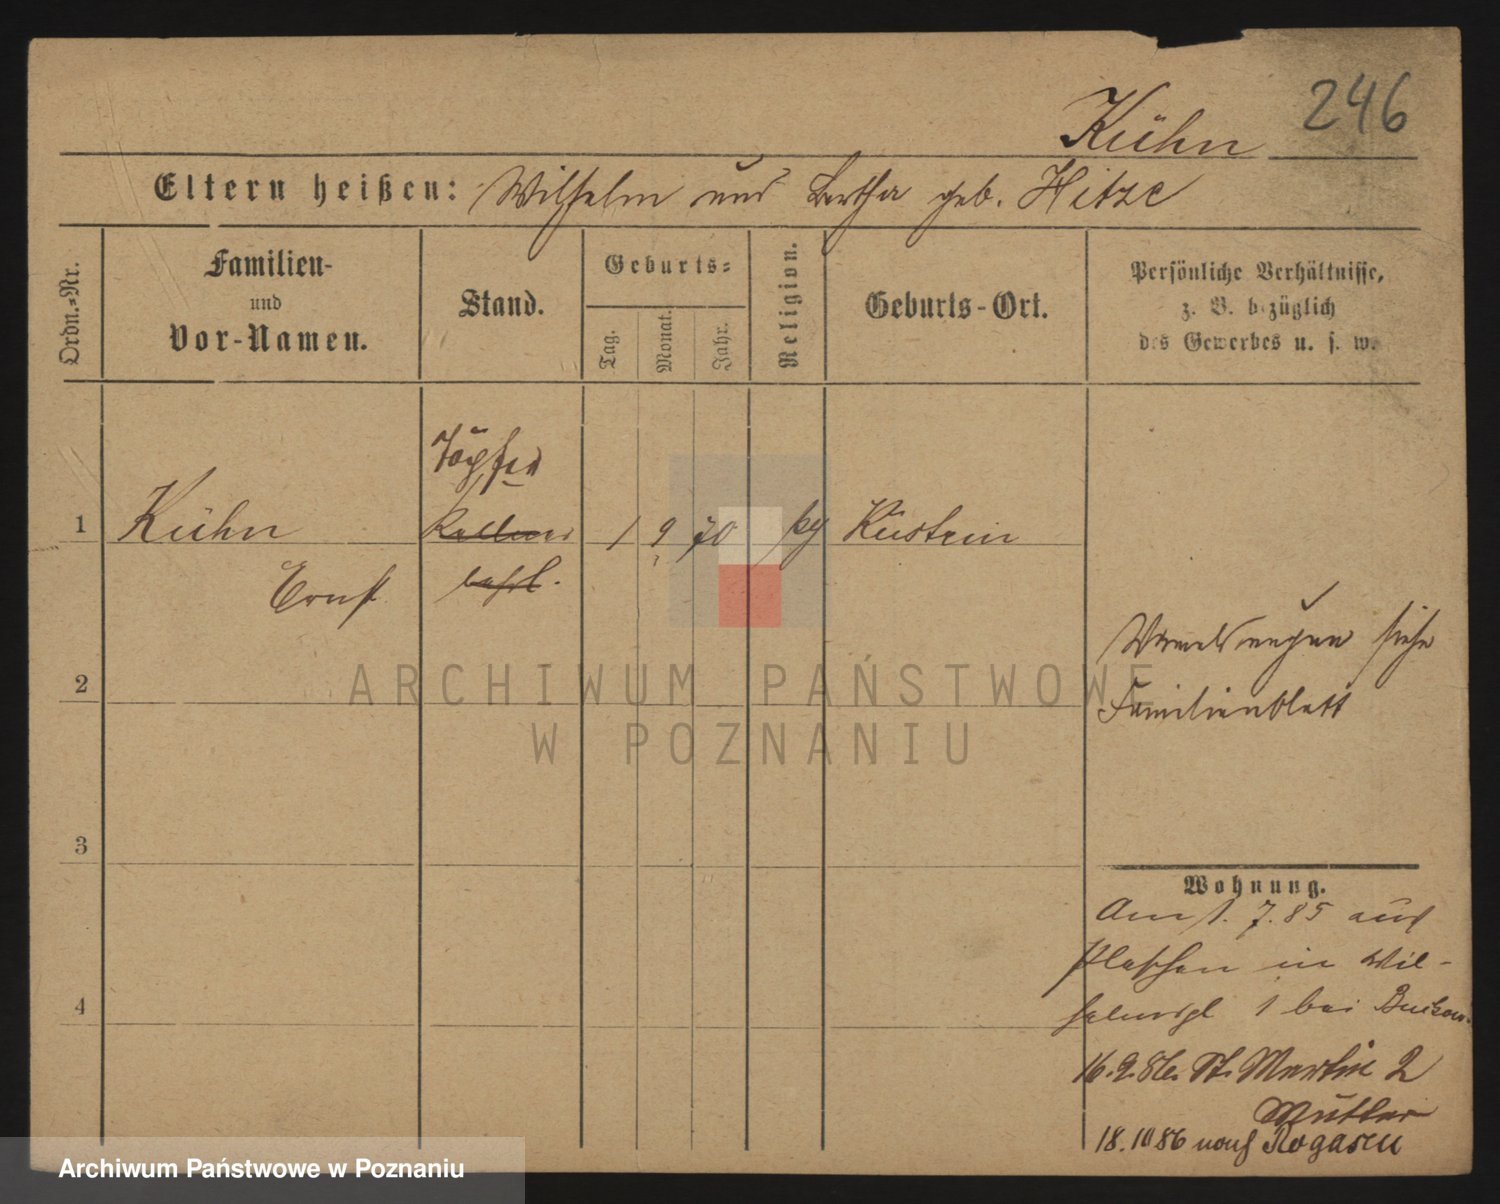 246
Kühn
Eltern heißen: Wilhelm und Bertha geb. Hitze
Ordn.-Nr.
Familien-
und
Vor-Namen.
Stand.
Geburts-
Tag.
Monat.
Jahr.
Religion.
Geburts-Ort.
Persönliche Verhältnisse,
z. B. bezüglich
des Gewerbes u. s. w.
Töpfer
1 Kühn Kellner 1 9 70 Küstrin
Ernst lehrl.
siehe
2 Familienblatt
3
Wohnung.
Am 1. 7. 85 aus
Pleschen in Wil-
helmspl 1 bei
4
16. 9. 86. St. Martin 2
Mutter
18. 10 86 nach Rogasen
ARCHIWUM PAŃSTWOWE
W POZNANIU
Archiwum Państwowe w Poznaniu